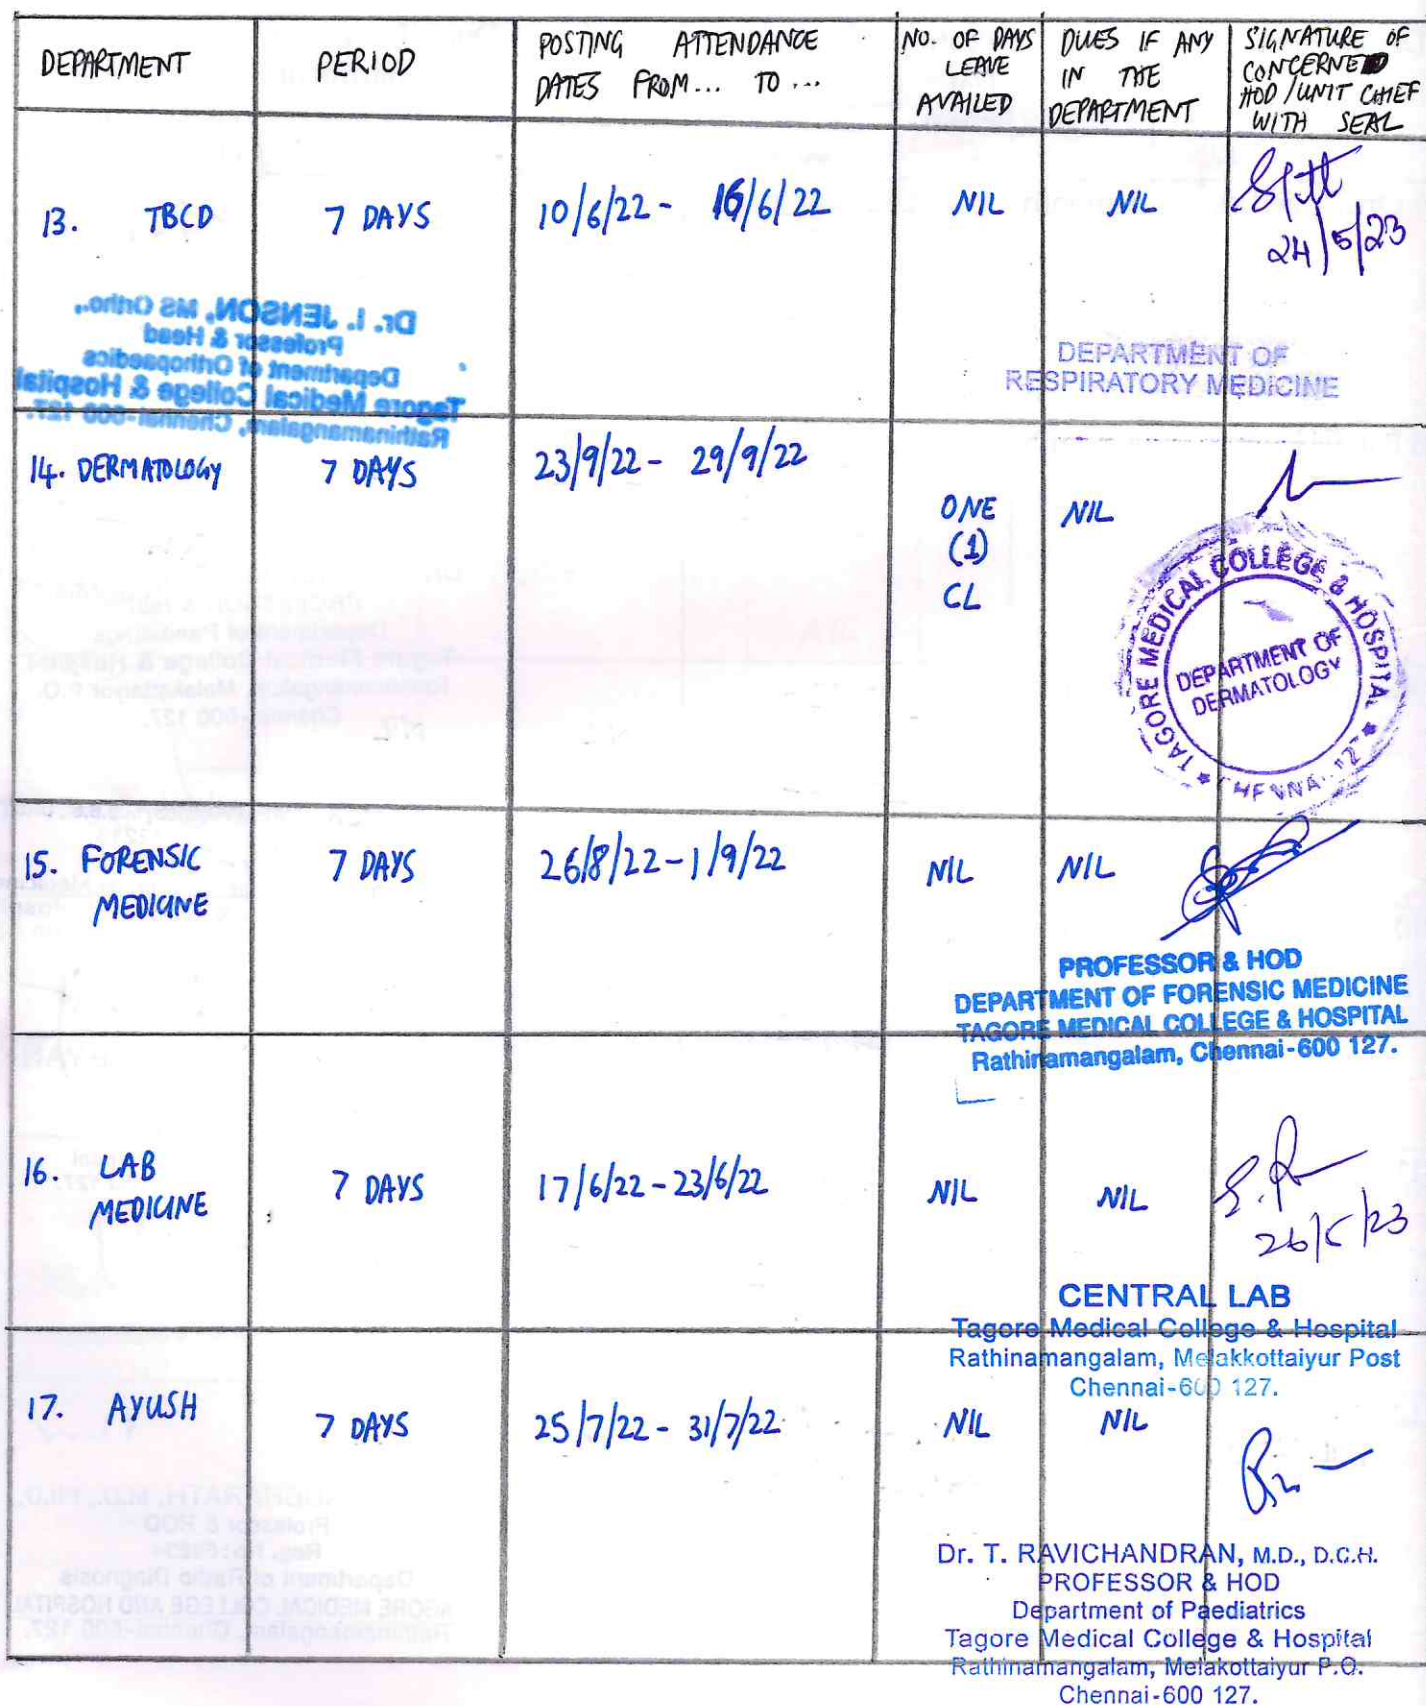 DEPARTMENT
PERIOD
POSTING ATTENDANCE
DATES FROM... TO ...
NO. OF DAYS
LEAVE
AVAILED
DUES IF ANY
IN THE
DEPARTMENT
SIGNATURE OF
CONCERNED
HOD/UNIT CHIEF
WITH SEAL
13. TBCD
7 DAYS
10/6/22 - 16/6/22
NIL
NIL
24/5/23
Dr. I. JENSON, MS Ortho.,
Professor & Head
Department of Orthopaedics
Tagore Medical College & Hospital
Rathinamangalam, Chennai-600 127.
DEPARTMENT OF
RESPIRATORY MEDICINE
14. DERMATOLOGY
7 DAYS
23/9/22 - 29/9/22
ONE
(1)
CL
NIL
TAGORE MEDICAL COLLEGE & HOSPITAL
DEPARTMENT OF
DERMATOLOGY
15. FORENSIC
MEDICINE
7 DAYS
26/8/22 - 1/9/22
NIL
NIL
PROFESSOR & HOD
DEPARTMENT OF FORENSIC MEDICINE
TAGORE MEDICAL COLLEGE & HOSPITAL
Rathinamangalam, Chennai-600 127.
16. LAB
MEDICINE
7 DAYS
17/6/22 - 23/6/22
NIL
NIL
26/5/23
CENTRAL LAB
Tagore Medical College & Hospital
Rathinamangalam, Melakkottaiyur Post
Chennai-600 127.
17. AYUSH
7 DAYS
25/7/22 - 31/7/22
NIL
NIL
Dr. T. RAVICHANDRAN, M.D., D.C.H.
PROFESSOR & HOD
Department of Paediatrics
Tagore Medical College & Hospital
Rathinamangalam, Melakottaiyur P.O.
Chennai-600 127.